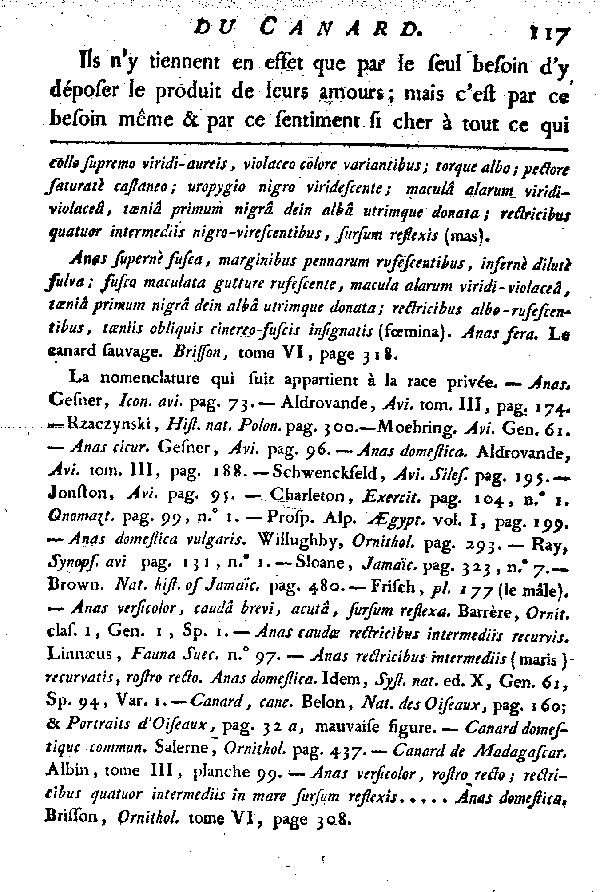 DU CANARD. 117
Ils n'y tiennent en effet que par le ſeul beſoin d'y
dépoſer le produit de leurs amours; mais c'eſt par ce
beſoin même & par ce ſentiment ſi cher à tout ce qui
collo ſupremo viridi-aureis, violaceo colore variantibus; torque albo; pectore
ſaturatè caſtaneo; uropygio nigro virideſcente; maculâ alarum viridi-
violaceâ, tæniâ primum nigrâ dein albâ utrimque donata; rectricibus
quatuor intermediis nigro-vireſcentibus, ſurſum reflexis (mas).
Anas ſupernè fuſca, marginibus pennarum rufeſcentibus, infernè dilutè
fulva; fuſco maculata gutture rufeſcente, macula alarum viridi-violaceâ,
tæniâ primum nigrâ dein albâ utrimque donata; rectricibus albo-rufeſcen-
tibus, tæniis obliquis cinereo-fuſcis inſignatis (fœmina). Anas fera. Le
canard ſauvage. Briſſon, tome VI, page 318.
La nomenclature qui ſuit appartient à la race privée. — Anas.
Geſner, Icon. avi. pag. 73. — Aldrovande, Avi. tom. III, pag. 174.
— Rzaczynski, Hiſt. nat. Polon. pag. 300. — Moehring. Avi. Gen. 61.
— Anas cicur. Geſner, Avi. pag. 96. — Anas domeſtica. Aldrovande,
Avi. tom. III, pag. 188. — Schwenckfeld, Avi. Sileſ. pag. 195. —
Jonſton, Avi. pag. 95. — Charleton, Exercit. pag. 104, n.° 1.
Onomazt. pag. 99, n.° 1. — Proſp. Alp. Ægypt. vol. I, pag. 199.
— Anas domeſtica vulgaris. Willughby, Ornithol. pag. 293. — Ray,
Synopſ. avi pag. 131, n.° 1. — Sloane, Jamaïc. pag. 323, n.° 7. —
Brown. Nat. hiſt. of Jamaïc. pag. 480. — Friſch, pl. 177 (le mâle).
— Anas verſicolor, caudâ brevi, acutâ, ſurſum reflexa. Barrère, Ornit.
claſ. 1, Gen. 1, Sp. 1. — Anas caudæ rectricibus intermediis recurvis.
Linnæus, Fauna Suec. n.° 97. — Anas rectricibus intermediis (maris)
recurvatis, roſtro recto. Anas domeſtica. Idem, Syſt. nat. ed. X, Gen. 61,
Sp. 94, Var. 1. — Canard, cane. Belon, Nat. des Oiſeaux, pag. 160;
& Portraits d'Oiſeaux, pag. 32 a, mauvaiſe figure. — Canard domeſ-
tique commun. Salerne, Ornithol. pag. 437. — Canard de Madagaſcar.
Albin, tome III, planche 99. — Anas verſicolor, roſtro recto; rectri-
cibus quatuor intermediis in mare ſurſum reflexis..... Anas domeſtica,
Briſſon, Ornithol. tome VI, page 308.